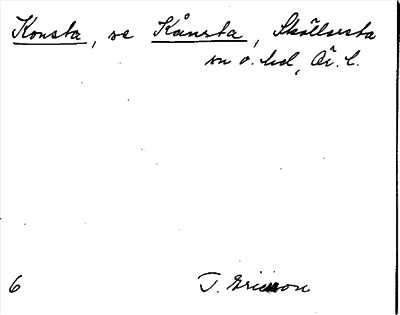 Konsta, se Kånsta, Sköllersta
sn o. hd, Ör. l.
6 T. Ericsson